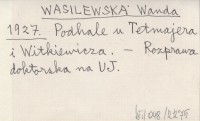 WASILEWSKA Wanda
1927. Podhale u Tetmajera
i Witkiewicza. – Rozprawa
doktorska na UJ.